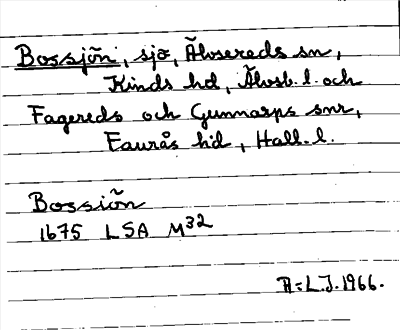 Bossjön, sjö, Älvsereds sn,
Kinds hd, Älvsb. l. och
Fagereds och Gunnarps snr,
Faurås hd, Hall. l.
Bossiön
1675 LSA M32
A=L.J. 1966.